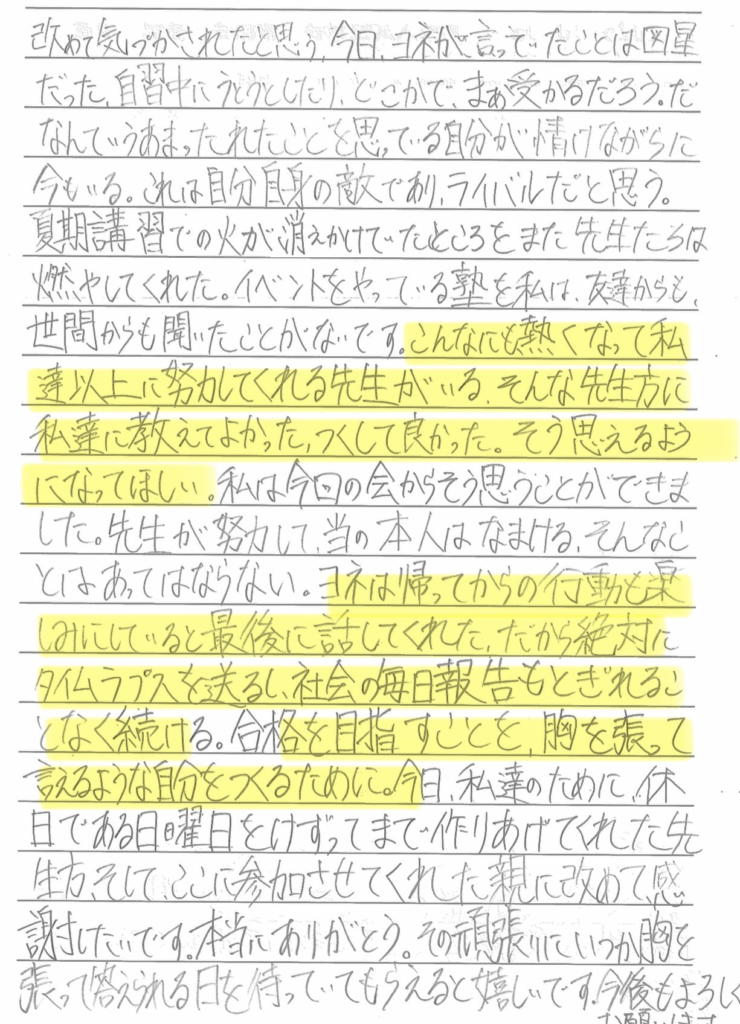 改めて気づかされたと思う。今日、ヨネが言っていたことは図星
だった。自習中にうとうとしたり、どこかで、まぁ受かるだろう。だ
なんていうあまったれたことを思っている自分が情けながらに
今もいる。これは自分自身の敵であり、ライバルだと思う。
夏期講習での火が消えかけていたところをまた先生たちは
燃やしてくれた。イベントをやっている塾を私は、友達からも、
世間からも聞いたことがないです。こんなにも熱くなって私
達以上に努力してくれる先生がいる、そんな先生方に
私達に教えてよかった、つくして良かった。そう思えるよう
になってほしい。私は今回の会からそう思うことができま
した。先生が努力して、当の本人はなまける、そんなこ
とはあってはならない。ヨネは帰ってからの行動も楽
しみにしていると最後に話してくれた、だから絶対に
タイムラプスを送るし、社会の毎日報告もとぎれるこ
となく続ける。合格を目指すことを、胸を張って
言えるような自分をつくるために。今日、私達のために、休
日である日曜日をけずってまで作りあげてくれた先
生方、そして、ここに参加させてくれた親に改めて感
謝したいです。本当にありがとう。その頑張りにいつか胸を
張って答えられる日を待っていてもらえると嬉しいです。今後もよろしく
お願いします